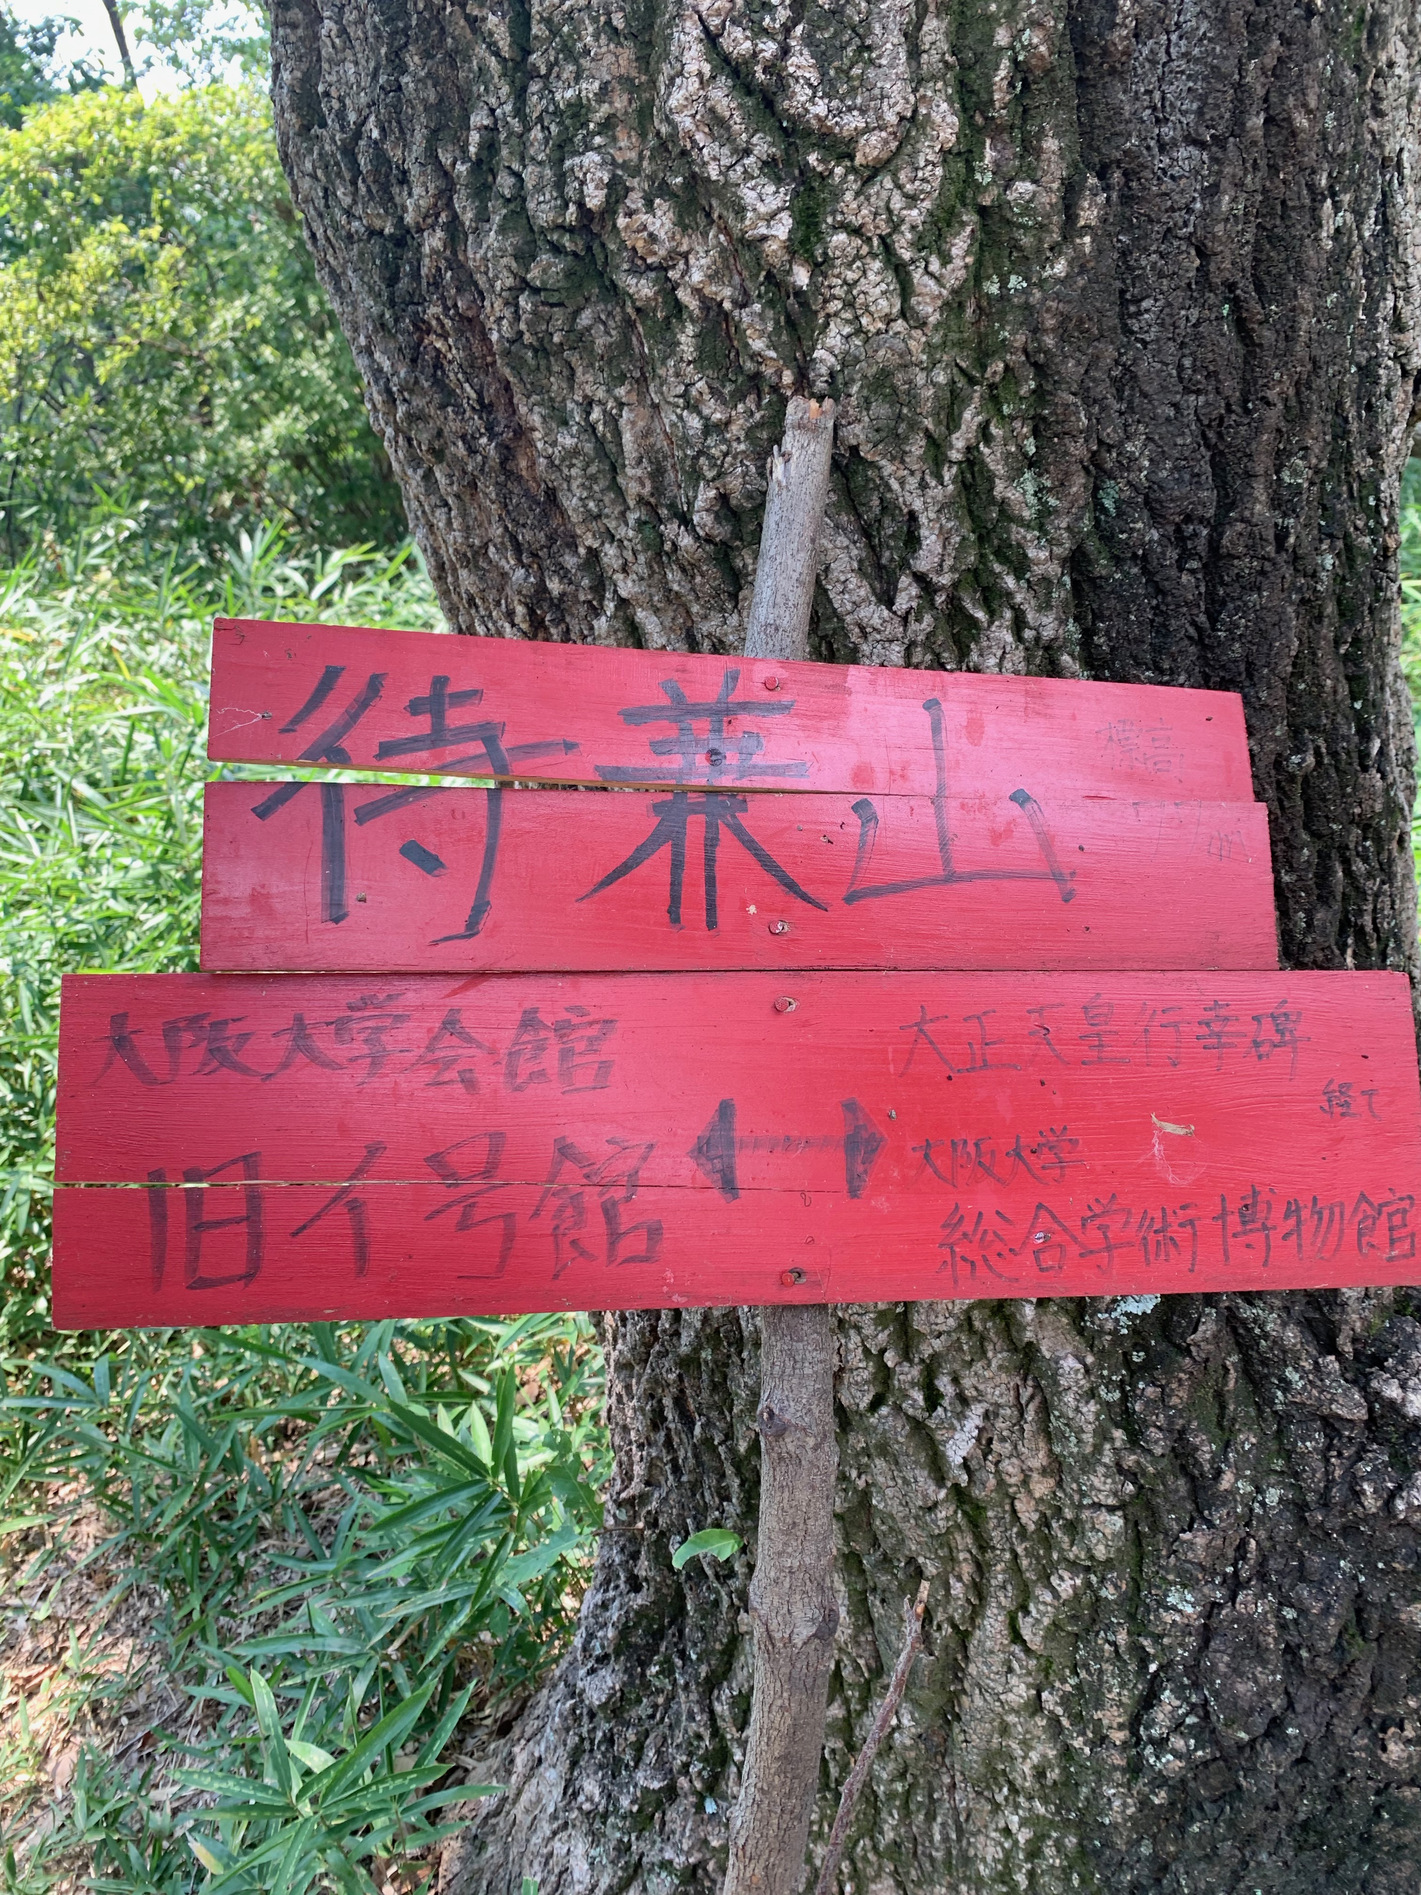 待兼山
標高
77.7m
大阪大学会館
旧イ号館
大正天皇行幸碑
経て
大阪大学
総合学術博物館